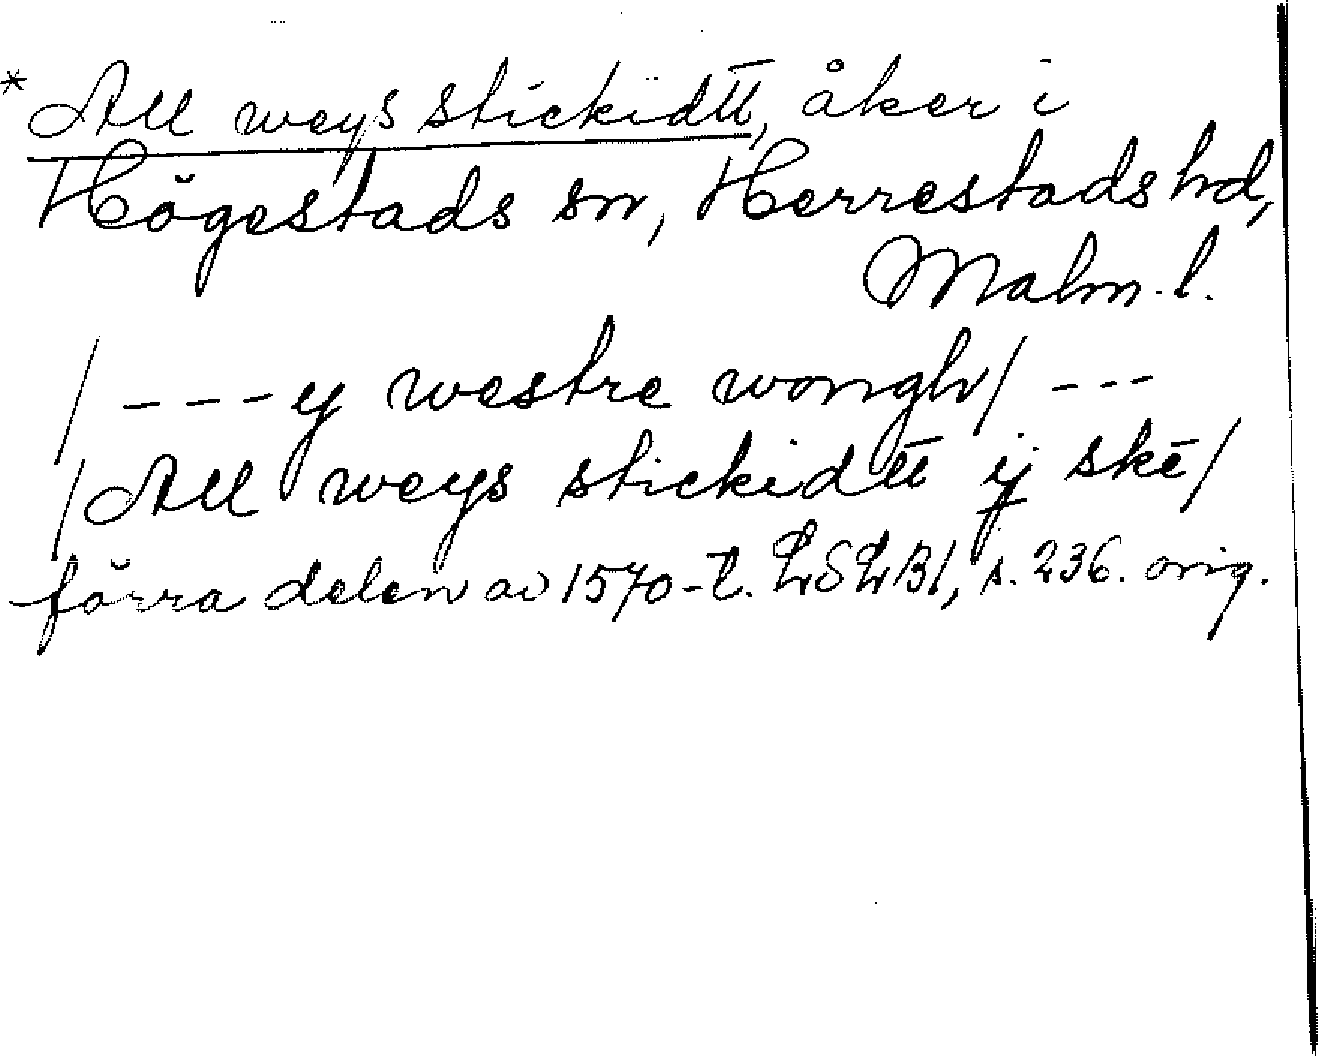 * All weys stickidtt, åker i
Högestads sn, Herrestads hd,
Malm. l.
/ - - - y westre wongh / - - -
/ All weys stickidtt ij skē /
förra delen av 1570-t. LSLB1, s. 236. orig.